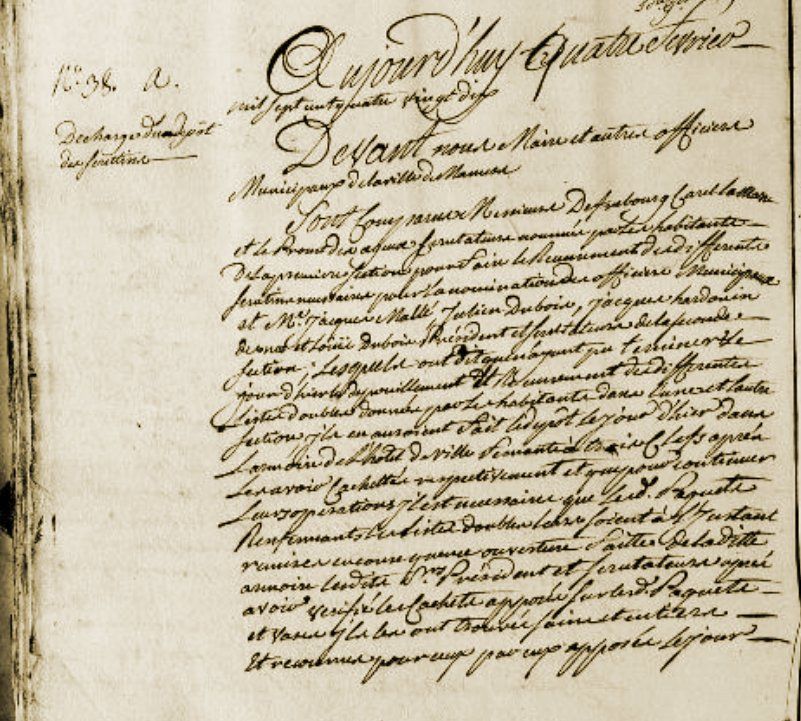 N.° 38. A.
Decharge d'un depôt
des scruttins
Aujourd'huy quatre fevrier
mil sept cent quatre vingt dix
Devant nous Maire et autres officiers
Municipaux de la ville de Mamers
Sont Comparus Messieurs Defrebourg Carel
et le Front des aqeux Scrutateurs nommés par les habitants
De la premiere section pour faire le Recensement des differents
scrutins necessaires pour la nomination des officiers Municipaux
et M.rs Jacques Mallé Julien Dubois, Jacques hardouin
et Louis Dubois Président et scrutateurs de la seconde
section; Lesquels ont dit que n'ayant pu terminer le
jour d'hier le depouillement et Recensement des differentes
Listes doubles données par les habitants dans l'une et l'autre
section ils en auroient fait le depôt le jour d'hier dans
L'armoire de l'hotel de ville fermante à trois Clefs après
Les avoir Cachettés respectivement et que pour continuer
Leurs operations il est necessaire que lesd. Paquets
Renfermants les Listes doubles leurs soient à l'instant
remises en consequence ouverture faitte de la ditte
armoire lesdits s.rs Président et scrutateurs après
avoir verifié les Cachets apposés sur lesd. Paquets
et vases ils les ont trouvés sains et entiers
Et reconnus pour ceux par eux apposés le jour